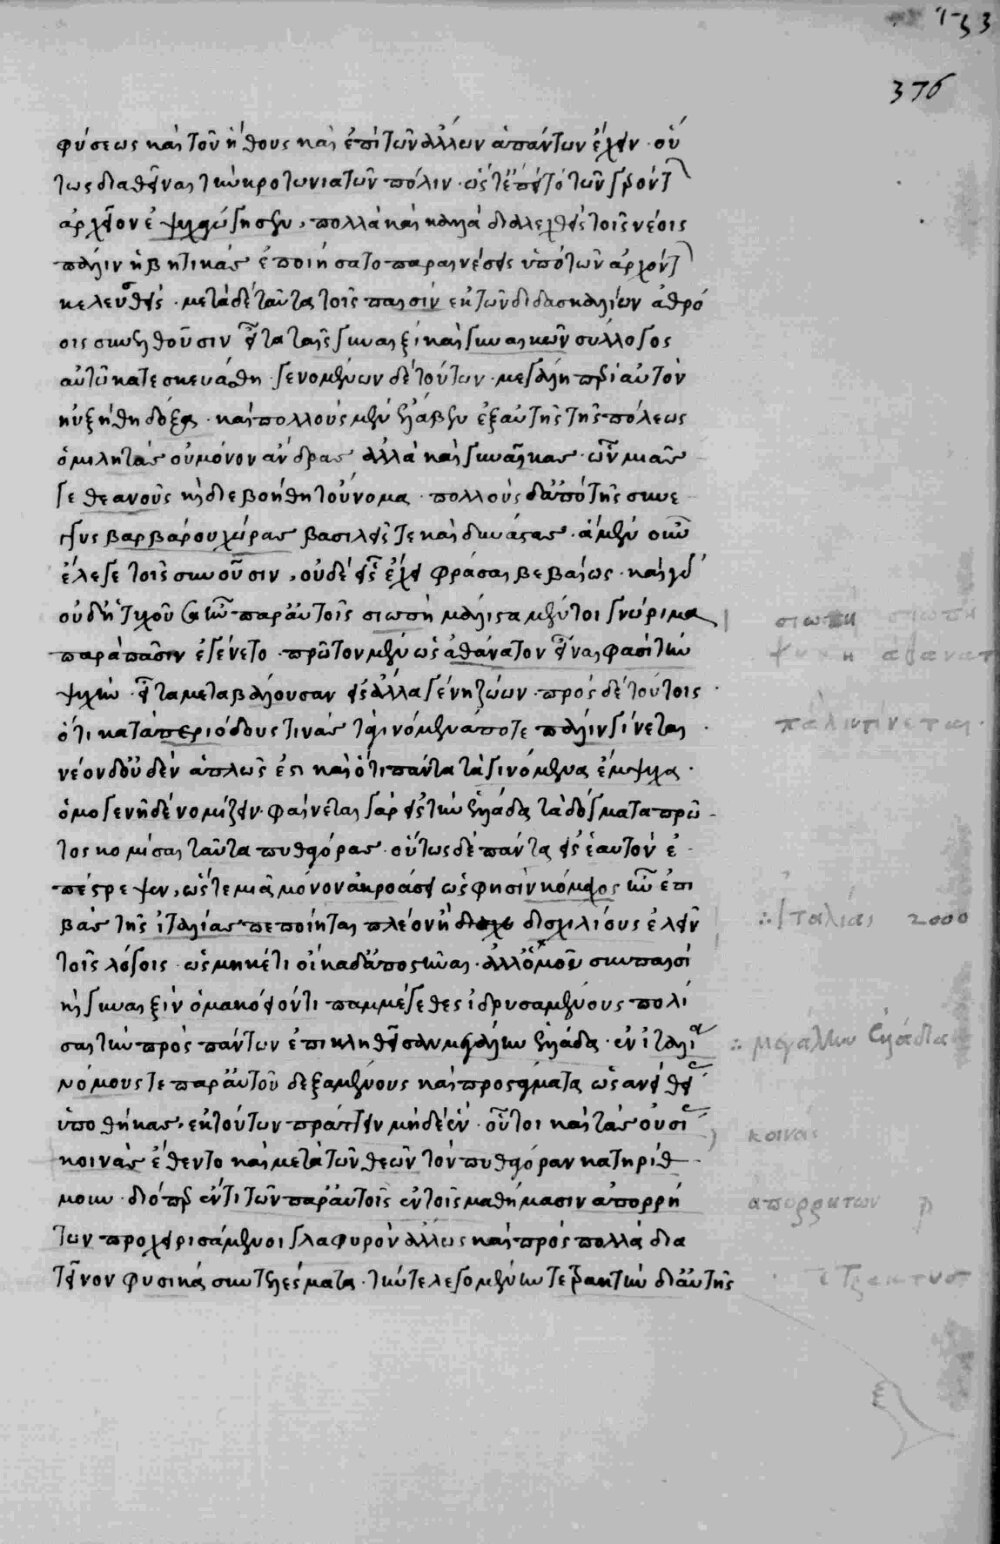 153
376
φύσεως καὶ τοῦ ἤθους καὶ ἐπὶ τῶν ἄλλων ἁπάντων ἔχειν· οὕ
τως διαθεῖναι τὴν κροτωνιατῶν πόλιν· ὥστ' ἐπεὶ τὸ τῶν γερόντ
ἀρχεῖον ἐψυχαγώγησεν, πολλὰ καὶ καλὰ διαλεχθεὶς τοῖς νέοις
πάλιν ἡβητικὰς ἐποιήσατο παραινέσεις ὑπὸ τῶν ἀρχόντ
κελευσθείς· μετὰ δὲ ταῦτα τοῖς παισὶν ἐκ τῶν διδασκαλείων ἀθρό
οις συνελθοῦσιν εἶτα ταῖς γυναιξὶ καὶ γυναικῶν σύλλογος
αὐτῷ κατεσκευάσθη· γενομένων δὲ τούτων· μεγάλη περὶ αὐτὸν
ηὐξήθη δόξα· καὶ πολλοὺς μὲν ἔλαβεν ἐξ αὐτῆς τῆς πόλεως
ὁμιλητὰς οὐ μόνον ἄνδρας ἀλλὰ καὶ γυναῖκας· ὧν μιᾶς
γε θεανοῦς καὶ διεβοήθη τοὔνομα· πολλοὺς δ' ἀπὸ τῆς συνε
γγυς βαρβάρου χώρας βασιλεῖς τε καὶ δυνάστας· ἃ μὲν οὖν
ἔλεγε τοῖς συνοῦσιν, οὐδὲ εἷς ἔχει φράσαι βεβαίως· καὶ γὰρ
οὐδ' ἡ τυχοῦσα ἦν παρ' αὐτοῖς σιωπὴ μάλιστα μέντοι γνώριμα
παρὰ πᾶσιν ἐγένετο πρῶτον μὲν ὡς ἀθάνατον εἶναι φασὶ τὴν
ψυχήν· εἶτα μεταβάλλουσαν εἰς ἄλλα γένη ζώων· πρὸς δὲ τούτοις
ὅτι κατὰ περιόδους τινὰς τὰ γινόμενά ποτε πάλιν γίνεται·
νέον δ' οὐδὲν ἁπλῶς ἔστι καὶ ὅτι πάντα τὰ γινόμενα ἔμψυχα·
ὁμογενῆ δεῖ νομίζειν· φαίνεται γὰρ εἰς τὴν ἑλλάδα τὰ δόγματα πρῶ
τος κομίσαι ταῦτα πυθαγόρας· οὕτως δὲ πάντας εἰς ἑαυτὸν ἐ
πέστρεψεν, ὥστε μιᾷ μόνον ἀκροάσει ὡς φησὶν νικόμαχος ἣν ἐπι
βὰς τῆς ἰταλίας πεποίηται πλέον ἢ δισχιλίους ἑλεῖν
τοῖς λόγοις· ὡς μηκέτι οἴκαδ' ἀποστῆναι· ἀλλ' ὁμοῦ σὺν παισὶ
καὶ γυναιξὶν ὁμακοεῖόν τι παμμέγεθες ἱδρυσαμένους πολί
σαι τὴν πρὸς πάντων ἐπικληθεῖσαν μεγάλην ἑλλάδα· ἐν ἰταλία
νόμους τε παρ' αὐτοῦ δεξαμένους καὶ προστάγματα ὡσανεὶ θεί
ὑποθήκας, ἐκ τούτων πράττειν μηδὲ ἕν· οὗτοι καὶ τὰς οὐσί
κοινὰς ἔθεντο καὶ μετὰ τῶν θεῶν τὸν πυθαγόραν κατηρίθ
μουν· διόπερ ἕν τι τῶν παρ' αὐτοῖς ἐν τοῖς μαθήμασιν ἀπορρή
των προχειρισάμενοι γλαφυρὸν ἄλλως καὶ πρὸς πολλὰ δια
τεῖνον φυσικὰ συντελέσματα· τὴν τε λεγομένην τετρακτὺν δι' αὐτῆς
σιωπη σιωπη
ψυχη αθανατ
παλιν γίνεται
ἰταλίας 2000
μεγαλην ἑλλάδα
κοινὰς
ἀπορρητων
τετρακτυσ